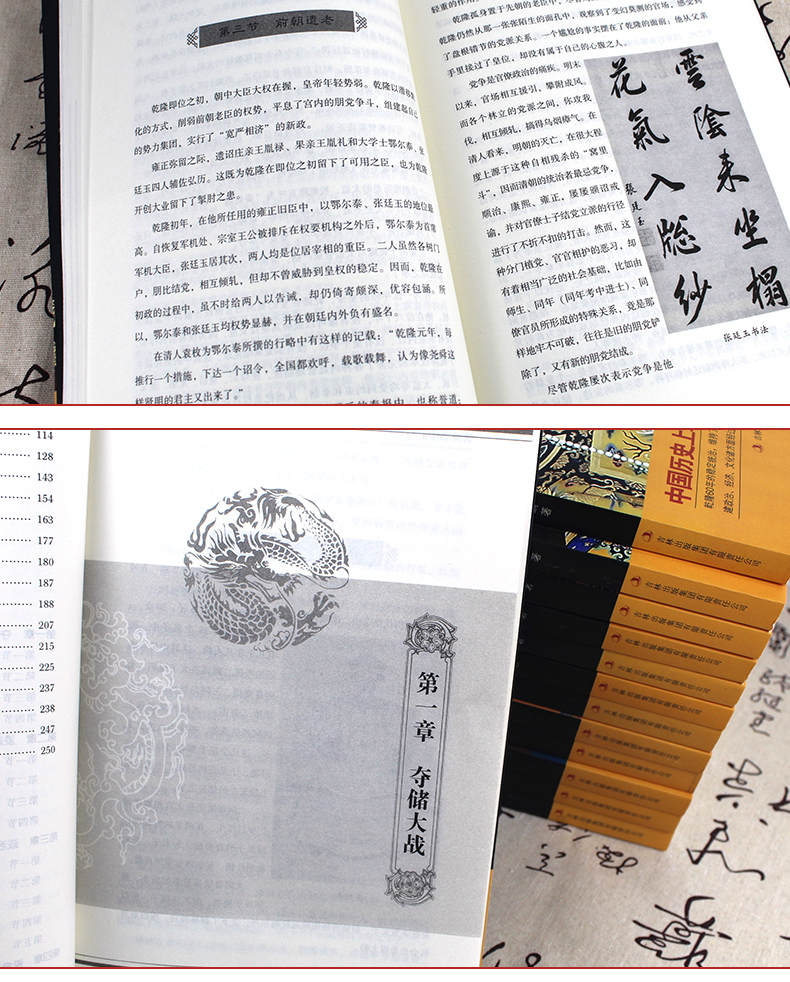 第三节 前朝遗老
乾隆即位之初，朝中大臣大权在握，皇帝年轻势弱。乾隆以潜移
化的方式，削弱前朝老臣的权势，平息了宫内的朋党争斗，组建起自己
的势力集团，实行了“宽严相济”的新政。
雍正弥留之际，遗诏庄亲王胤禄、果亲王胤礼和大学士鄂尔泰、张
廷玉四人辅佐弘历。这既为乾隆在即位之初留下了可用之臣，也为乾隆
开创大业留下了掣肘之患。
乾隆初年，在他所任用的雍正旧臣中，以鄂尔泰、张廷玉的地位最
高。自恢复军机处、宗室王公被排斥在权要机构之外后，鄂尔泰为首席
军机大臣，张廷玉居其次，两人均是位居宰相的重臣。二人虽然各树门
户，朋比结党，相互倾轧，但却不曾威胁到皇权的稳定。因而，乾隆在
初政的过程中，虽不时给两人以告诫，却仍倚寄颇深，优容包涵。所
以，鄂尔泰和张廷玉均权势显赫，并在朝廷内外负有盛名。
在清人袁枚为鄂尔泰所撰的行略中有这样的记载：“乾隆元年，每
推行一个措施，下达一个诏令，全国都欢呼，载歌载舞，认为像尧舜这
样贤明的君主又出来了。”
乾隆孤身置于先朝的老臣中，尽
乾隆仍然从那一张张陌生的面孔中，观察到了变幻莫测的官场，感受到
了盘根错节的党派关系。一个尴尬的事实摆在了乾隆的面前：他从父亲
手里接过了皇位，却没有属于自己的心腹之人。
党争是官僚政治的痼疾。明末
以来，官场相互援引，攀附成风，
而各个林立的党派之间，你攻我
伐，相互倾轧，搞得乌烟瘴气。在
清人看来，明朝的灭亡，在很大程
度上源于这种自相残杀的“窝里
斗”，因而清朝的统治者最忌党争，
顺治、康熙、雍正，屡屡颁诏戒
谕，并对官僚士子结党立派的行径
进行了不折不扣的打击。然而，这
种分门植党、官官相护的恶习，却
有着相当广泛的社会基础，比如由
师生、同年（同年考中进士）、同
僚官员所形成的特殊关系，竟是那
样地牢不可破，往往是旧的朋党铲
除了，又有新的朋党结成。
尽管乾隆屡次表示党争是他
雲陰未坐榻
花氣入牕紗
張廷玉
张廷玉书法
114
128
143
154
163
177
180
187
188
207
215
225
237
238
247
250
第一章 夺储大战
中国历史上
乾隆60年的稳定统治
吉林出版集团有限责任公司
吉林出版集团有限责任公司
吉林出版集团有限责任公司
吉林出版集团有限责任公司
吉林出版集团有限责任公司
吉林出版集团有限责任公司
吉林出版集团有限责任公司
吉林出版集团有限责任公司
吉林出版集团有限责任公司
吉林出版集团有限责任公司